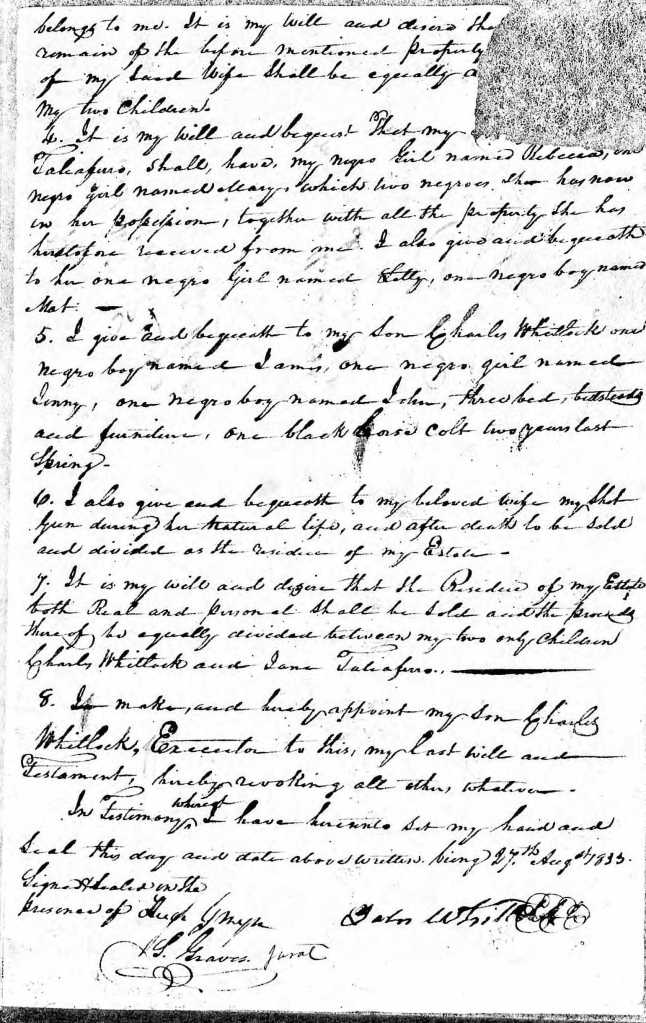 belongs to me. It is my will and desire the
remain of the before mentioned property
of my said Wife Shall be equally
My two Children
4. It is my will and bequest That my
Taliaferro, shall, have, my negro Girl named Rebecca, one
negro girl named Mary, which two negroes She has now
in her possession, together with all the property She has
heretofore received from me. I also give and bequeath
to her one negro Girl named Letty, one negro boy named
Mat. —
5. I give and bequeath to my Son Charles Whitlock one
negro boy named James, one negro girl named
Jinny, one negro boy named John, three bed, bedsteads
and furniture, one black horse colt two years last
Spring -
6. I also give and bequeath to my beloved wife my Shot
Gun during her Natural life, and after death to be Sold
and divided as the residue of my Estate -
7. It is my will and desire that the Residue of my Estate
both Real and personal Shall be Sold and the proceeds
there of be equally divided between my two only Children
Charles Whitlock and Jane Taliaferro.
8. I make, and hereby appoint my son Charles
Whitlock, Executor to this, my last will and
Testament, hereby revoking all others whatever -
In Testimony whereof I have hereunto set my hand and
Seal this day and date above written being 27th Augst 1833.
Signed & sealed in the
presence of Hugh
S. Graves Jurat